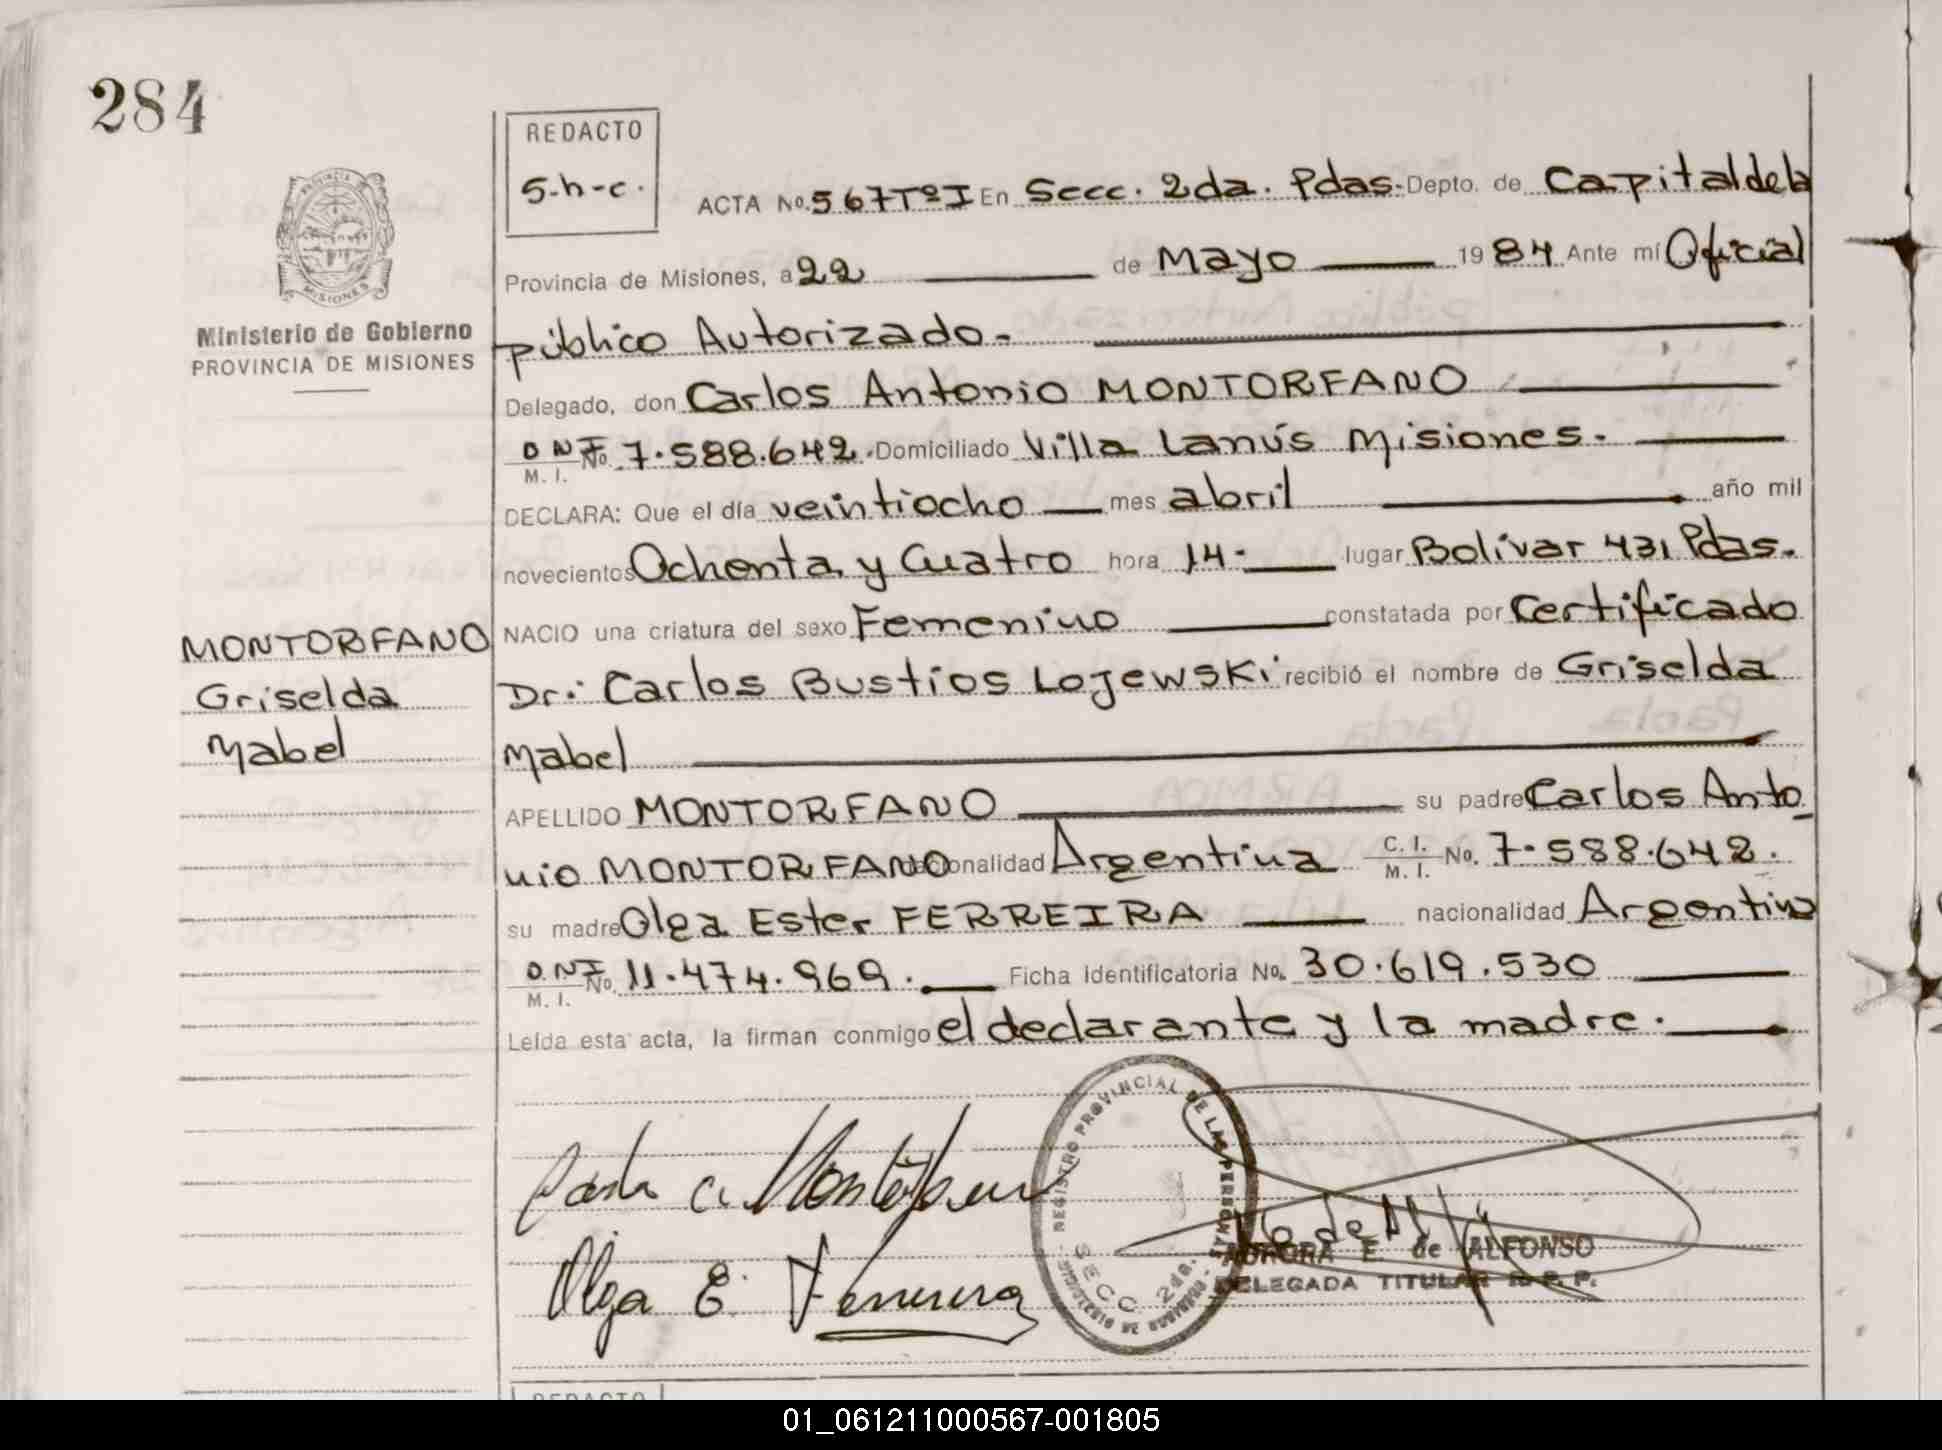 284
REDACTO
S-h-c.
ACTA No. 567 Tº I En Secc. 2da. Pdas. Depto. de Capital de la
Provincia de Misiones, a 22 de Mayo 1984 Ante mí Oficial
público Autorizado.-
Delegado, don Carlos Antonio MONTORFANO
D N I M. I. No. 7.588.642. Domiciliado Villa Lanús Misiones.
DECLARA: Que el día veintiocho mes abril año mil
novecientos Ochenta y Cuatro hora 14- lugar Bolívar 431 Pdas.
NACIO una criatura del sexo Femenino constatada por Certificado
Dr: Carlos Bustios Lojewski recibió el nombre de Griselda
Mabel
APELLIDO MONTORFANO su padre Carlos Anto
nio MONTORFANO nacionalidad Argentina C. I. M. I. No. 7.588.642.
su madre Olga Ester FERREIRA nacionalidad Argentina
D. N I M. I. No. 11.474.969. Ficha identificatoria No. 30.619.530
Leída esta acta, la firman conmigo el declarante y la madre.
PROVINCIA DE
MISIONES
Ministerio de Gobierno
PROVINCIA DE MISIONES
MONTORFANO
Griselda
Mabel
Carlos A. Montorfano
Olga E. Ferreira
REGISTRO PROVINCIAL DE LAS PERSONAS
SECC 2da.
MINISTERIO DE GOBIERNO
AURORA E. de ALFONSO
DELEGADA TITULAR R. P. P.
REDACTO
01_061211000567-001805